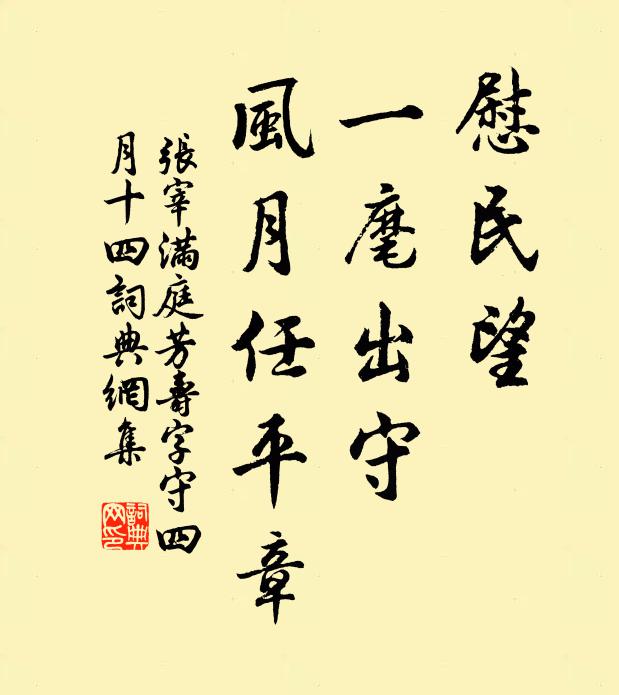 慰民望
一麾出守
風月任平章
張宰滿庭芳壽字守四
月十四詞典網集
詞典
网印